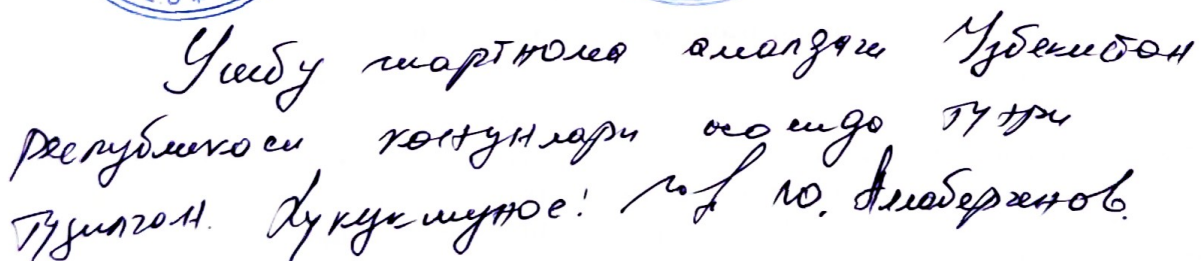 Ушбу шартнома амалдаги Узбекистон
республикаси конунлари асосида тугри
тузилган. Хукукшунос: Ю. Аллаберганов.